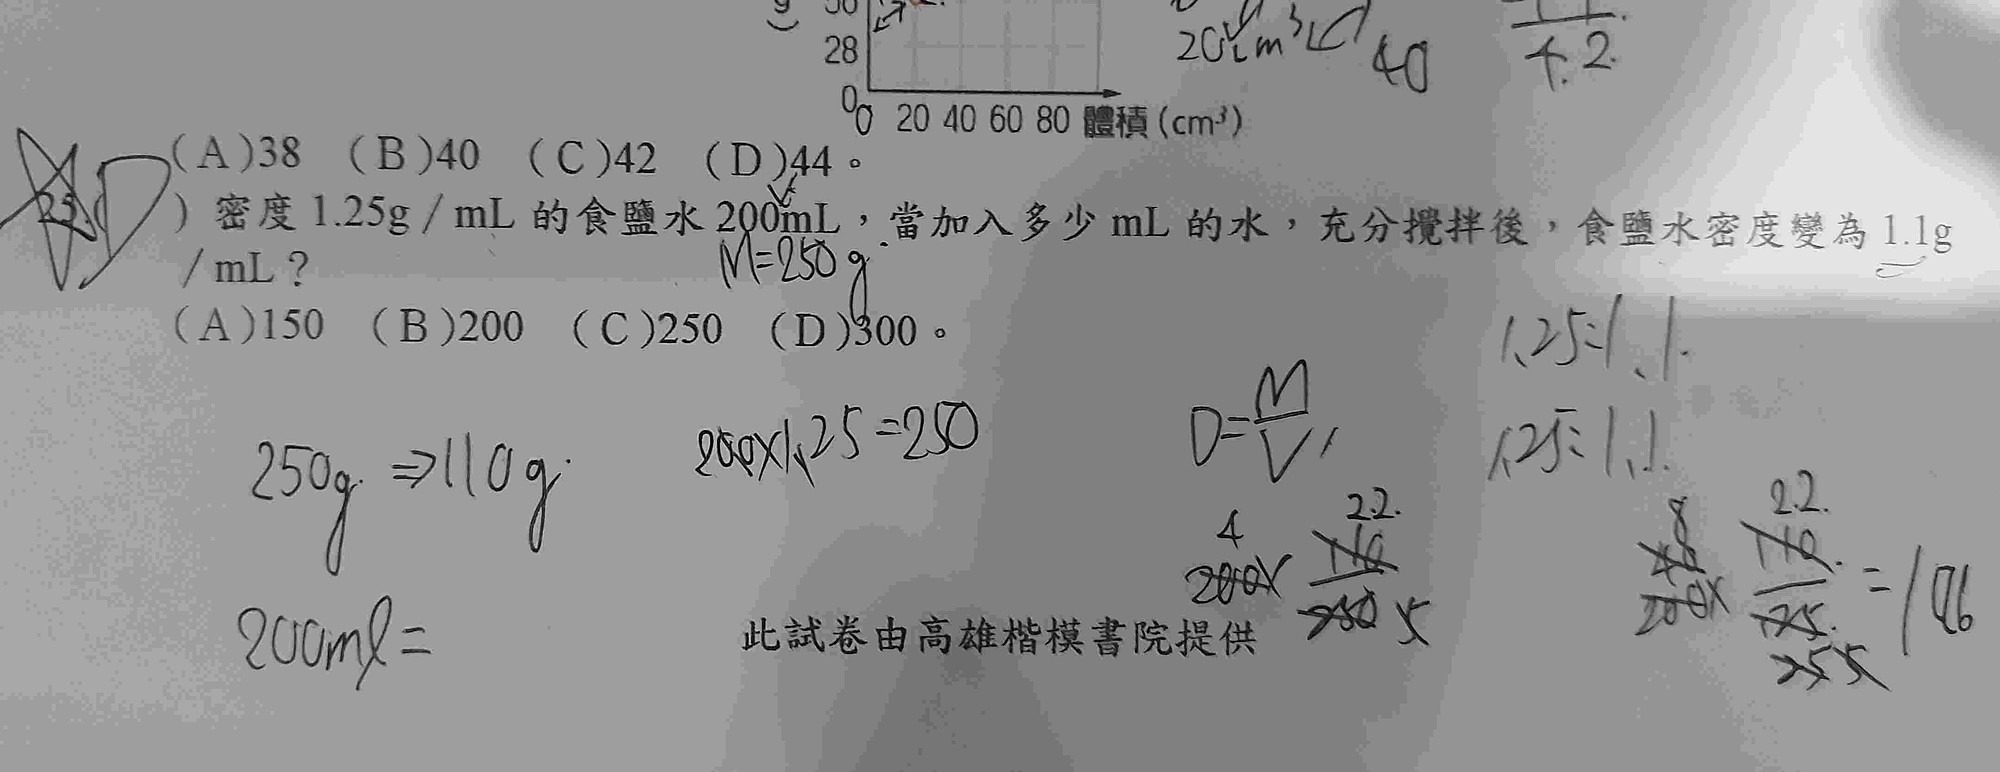 28
0
0 20 40 60 80 體積(cm³)
20cm³
40
4.2
(A)38 (B)40 (C)42 (D)44。
25.
)密度 1.25g/mL 的食鹽水 200mL,當加入多少 mL 的水,充分攪拌後,食鹽水密度變為 1.1g
/mL?
M=250g
(A)150 (B)200 (C)250 (D)300。
1.25=1.1
250g ⇒110g
200×1.25=250
D=M/V
1.25=1.1
4
200×
2.2
110
250 5
8
40
200×
2.2
110
125
25 5
=
200ml=
此試卷由高雄楷模書院提供